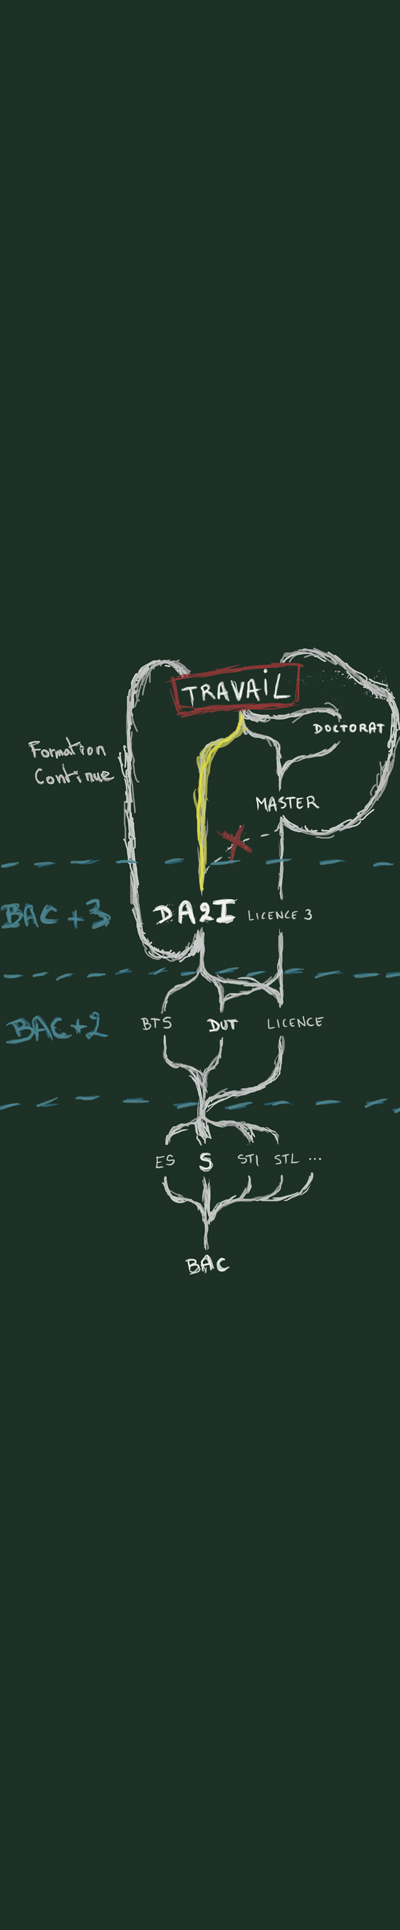 TRAVAIL
DOCTORAT
Formation
Continue
MASTER
BAC +3
DA2I
LICENCE 3
BAC+2
BTS
DUT
LICENCE
ES
S
STI
STL ...
BAC